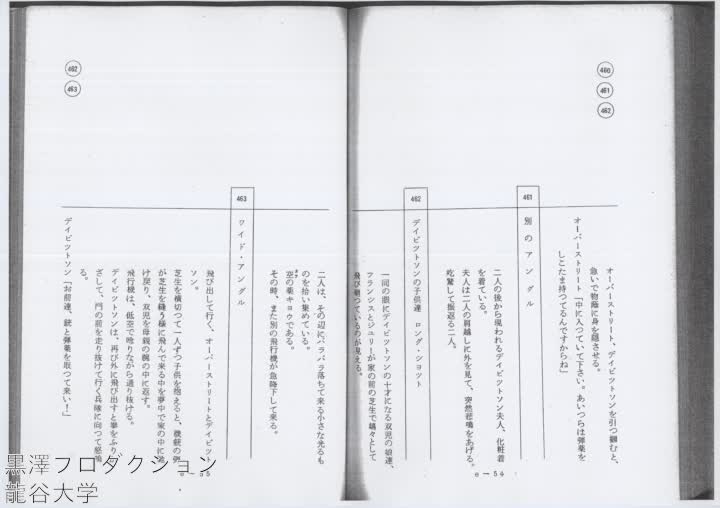 460
461
462
オーバーストリート、デイビツトソンを引つ摑むと、
急いで物蔭に身を隠させる。
オーバーストリート「中に入つていて下さい。あいつらは弾薬を
しこたま持つてるんですからね」
461
別のアングル
二人の後から現われるデイビツトソン夫人、化粧着
を着ている。
夫人は二人の肩越しに外を見て、突然悲鳴をあげる。
吃驚して振返る二人。
462
デイビツトソンの子供達 ロング・シヨツト
一同の眼にデイビツトソンの十才になる双児の娘達、
フランシスとジュリーが家の前の芝生で嬉々として
飛び廻つているのが見える。
e—54
462
463
二人は、その辺にバラバラ落ちて来る小さな光るも
のを拾い集めている。
空の薬キョウである。
その時、また別の飛行機が急降下して来る。
463
ワイド・アングル
飛び出して行く、オーバーストリートとデイビツト
ソン。
芝生を横切つて一人ずつ子供を抱えると、機銃の弾
が芝生を縫う様に飛んで来る中を夢中で家の中に逃
け戻り、双児を母親の腕の中に返す。
飛行機は、低空で唸りながら通り抜ける。
デイビツトソンは、再び外に飛び出すと拳をふり
ざして、門の前を走り抜けて行く兵隊に向つて怒鳴
る。
デイビツトソン「お前達、銃と弾薬を取つて来い！」
e—55
黒澤プロダクション
龍谷大学